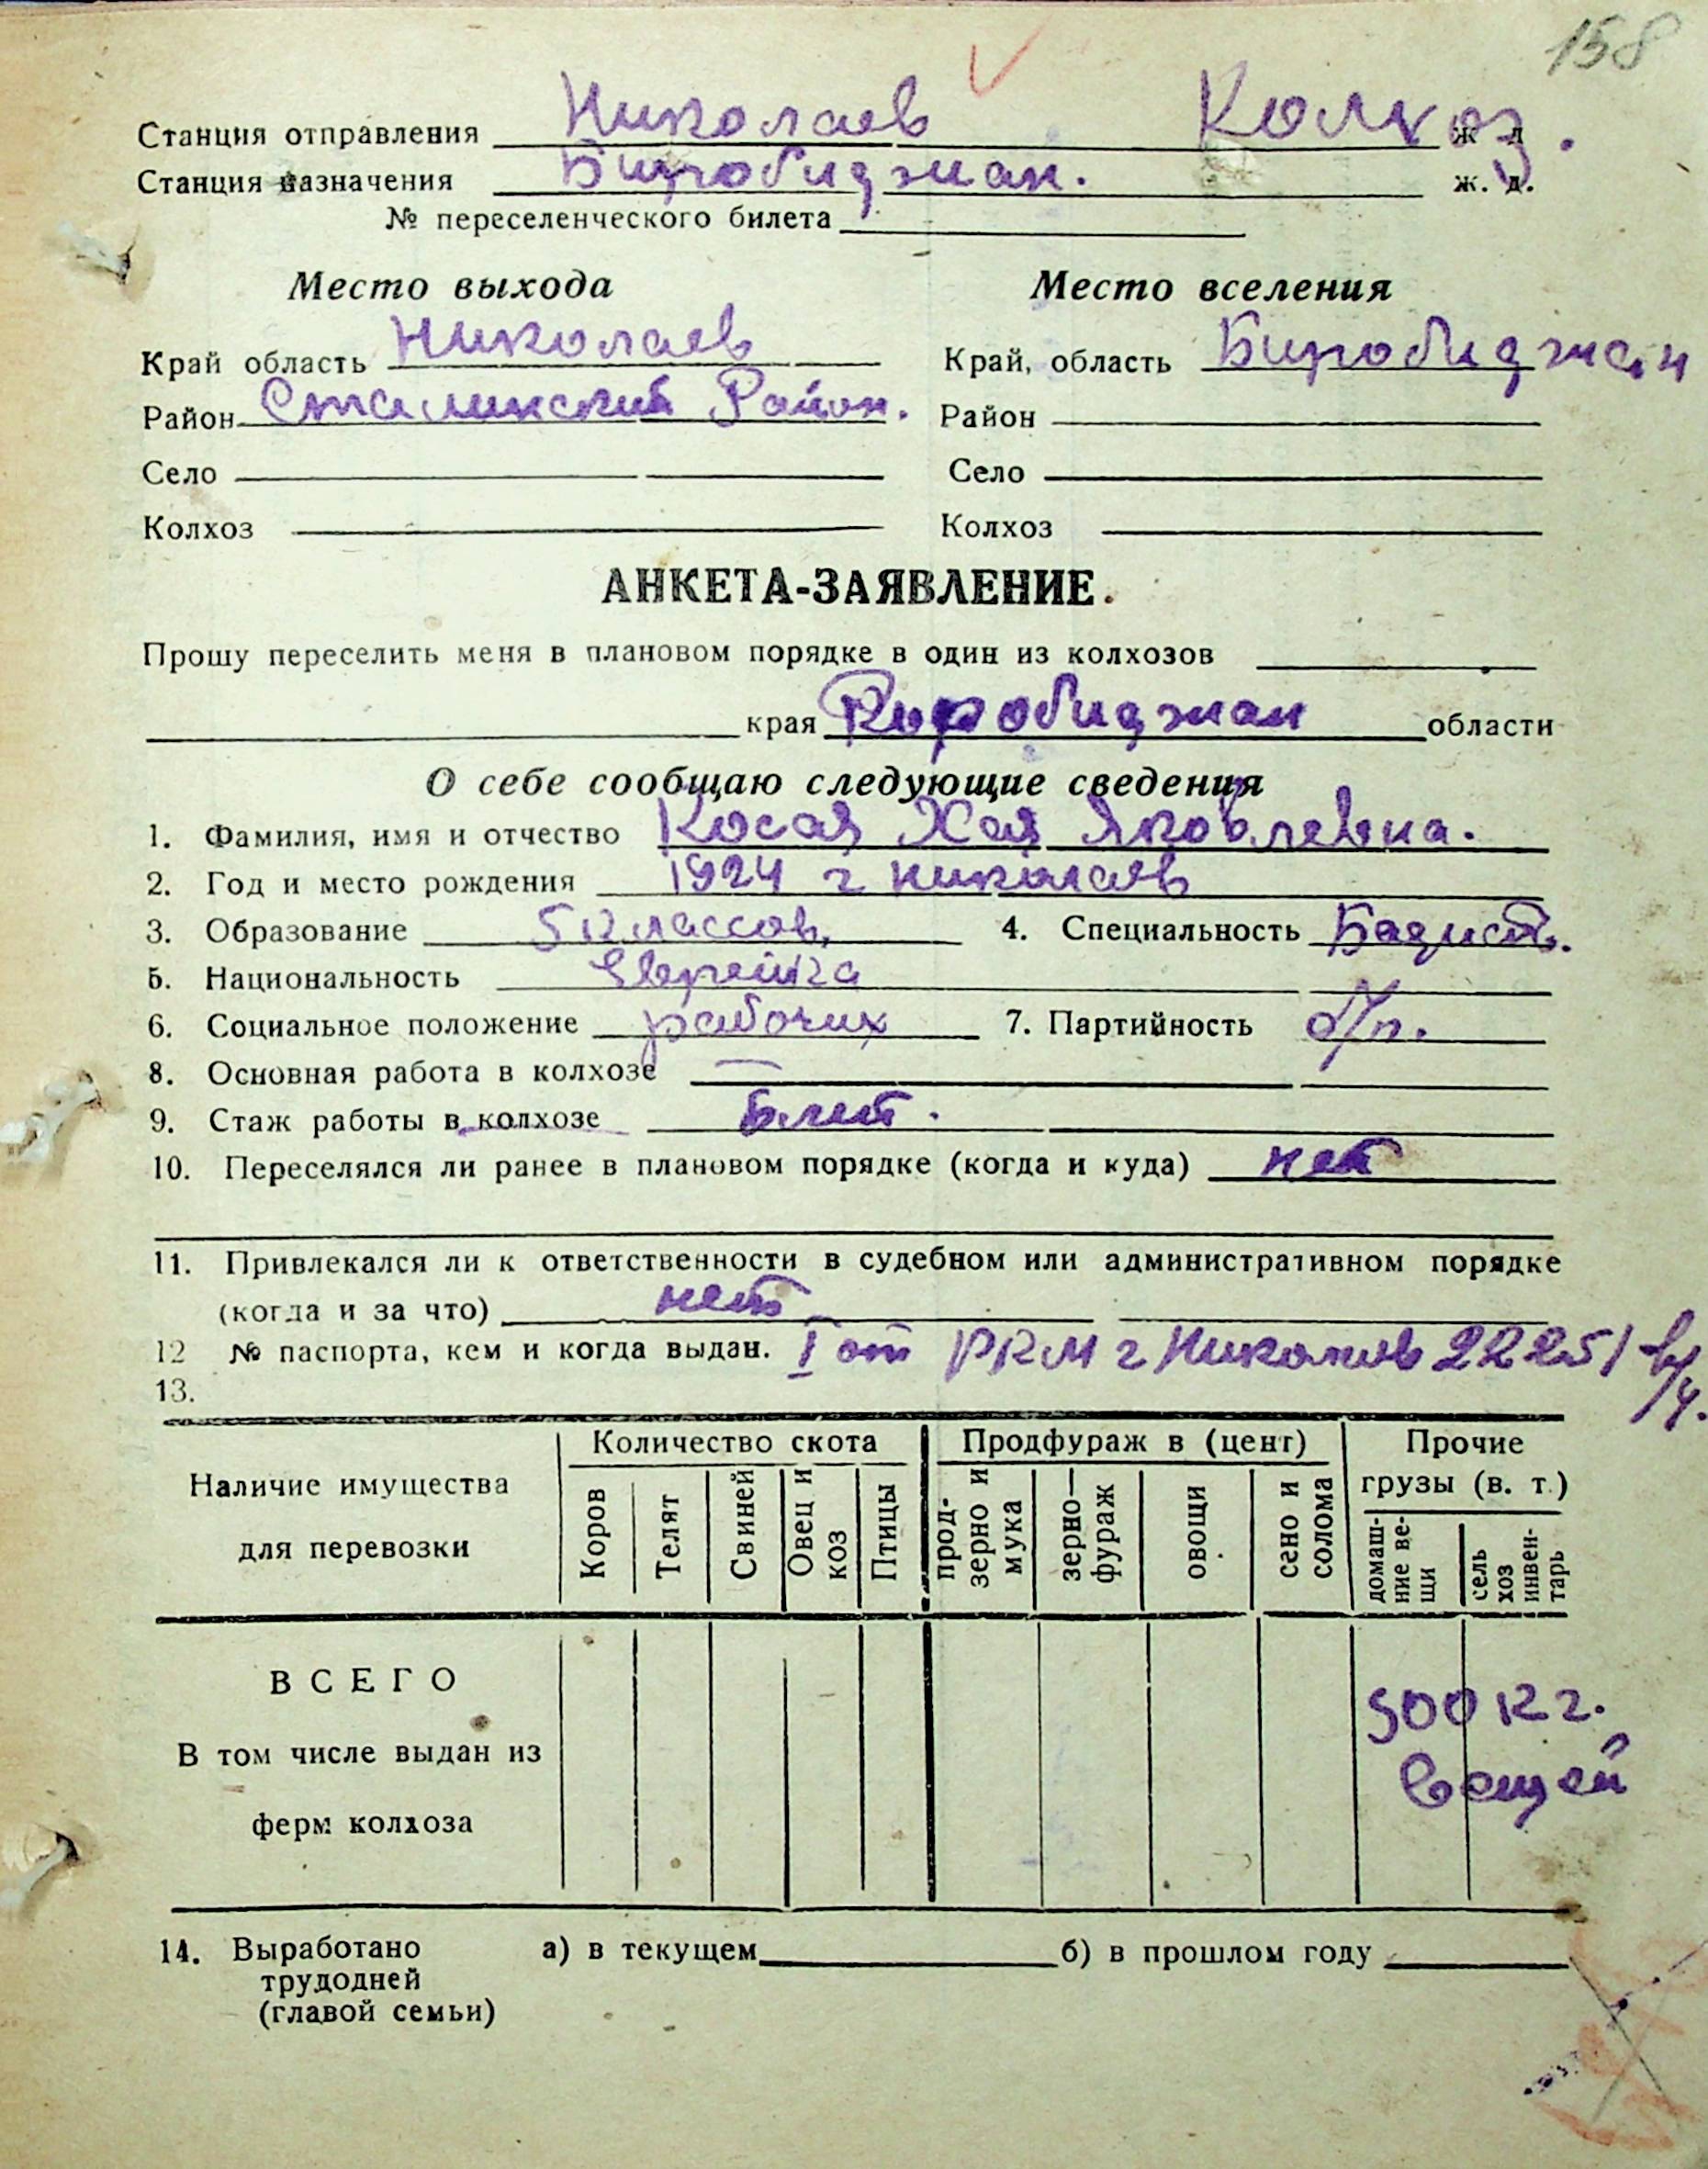 158
Станция отправления Николаев Колхоз. ж д
Станция назначения Биробиджан. ж. д.
№ переселенческого билета
Место выхода Место вселения
Край область Николаев Край, область Биробиджан
Район Сталинский Район. Район
Село Село
Колхоз Колхоз
АНКЕТА-ЗАЯВЛЕНИЕ.
Прошу переселить меня в плановом порядке в один из колхозов
края Биробиджан области
О себе сообщаю следующие сведения
1. Фамилия, имя и отчество Косая Хая Яковлевна.
2. Год и место рождения 1924 г Николаев
3. Образование 5 классов, 4. Специальность
5. Национальность Еврейка
6. Социальное положение рабочих 7. Партийность б/п.
8. Основная работа в колхозе —
9. Стаж работы в колхозе 5 лет.
10. Переселялся ли ранее в плановом порядке (когда и куда) нет
11. Привлекался ли к ответственности в судебном или административном порядке
(когда и за что) нет
12 № паспорта, кем и когда выдан. I от РКМ г Николаев 22251
13.
Наличие имущества для перевозки
Количество скота Продфураж в (цент) Прочие грузы (в. т.)
Коров Телят Свиней Овец и коз Птицы прод-зерно и мука зерно—фураж овощи сено и солома домаш-ние ве-щи сель хоз инвен-тарь
ВСЕГО 500 кг.
В том числе выдан из вещей
ферм колхоза
14. Выработано а) в текущем б) в прошлом году
трудодней
(главой семьи)